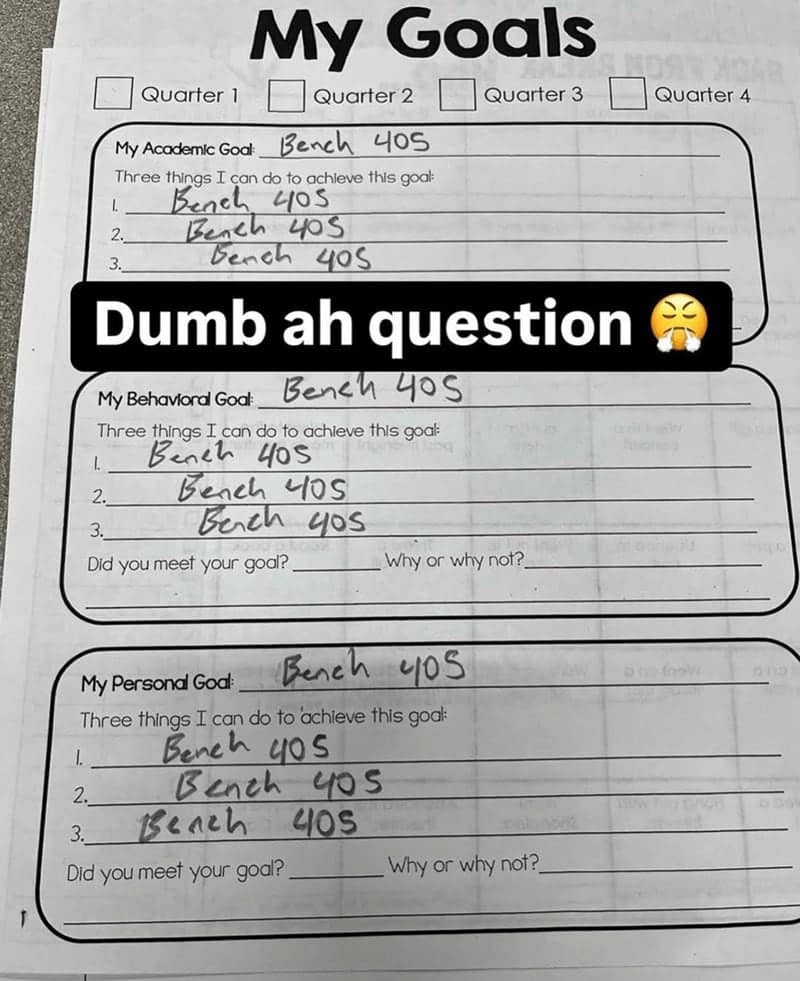 My Goals
Quarter 1 Quarter 2 Quarter 3 Quarter 4
My Academic Goal: Bench 405
Three things I can do to achieve this goal:
1. Bench 405
2. Bench 405
3. Bench 405
Dumb ah question 😤
My Behavioral Goal: Bench 405
Three things I can do to achieve this goal:
1. Bench 405
2. Bench 405
3. Bench 405
Did you meet your goal? Why or why not?
My Personal Goal: Bench 405
Three things I can do to achieve this goal:
1. Bench 405
2. Bench 405
3. Bench 405
Did you meet your goal? Why or why not?